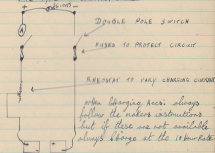 A
DOUBLE POLE SWITCH
FUSES TO PROTECT CIRCUIT
RHEOSTAT TO VARY CHARGING CURRENT
When Charging Accs: always
follow the makers instructions
but if these are not available
always charge at the 10 hour Rate